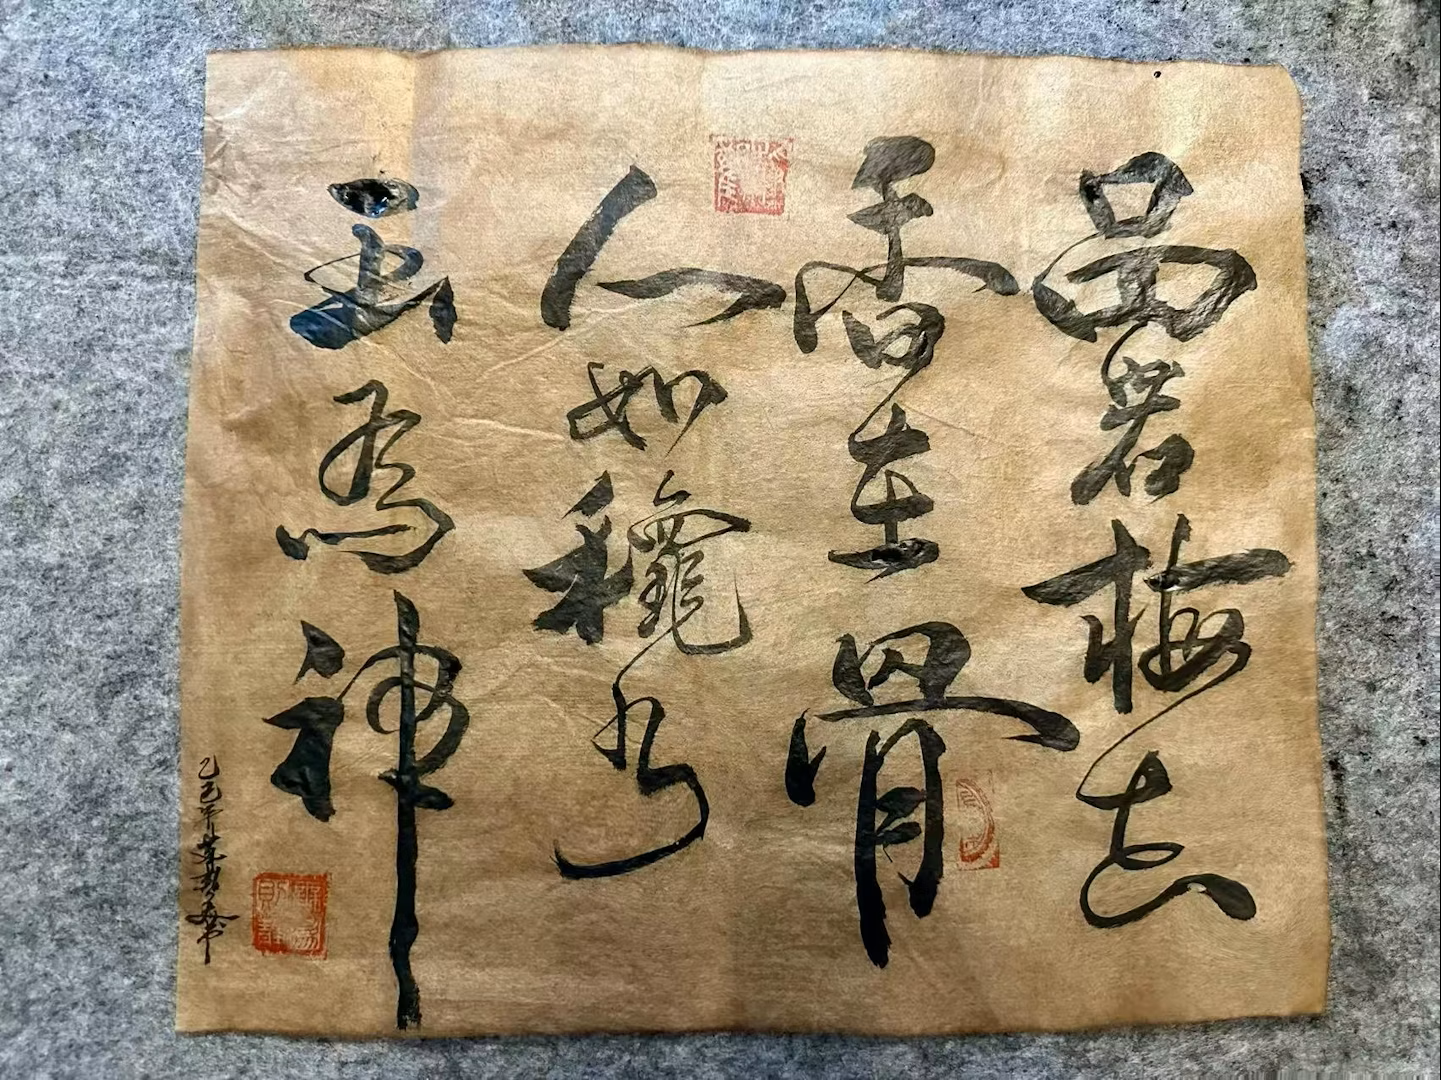 品若梅花
香在骨
人如秋水
玉為神
乙巳年